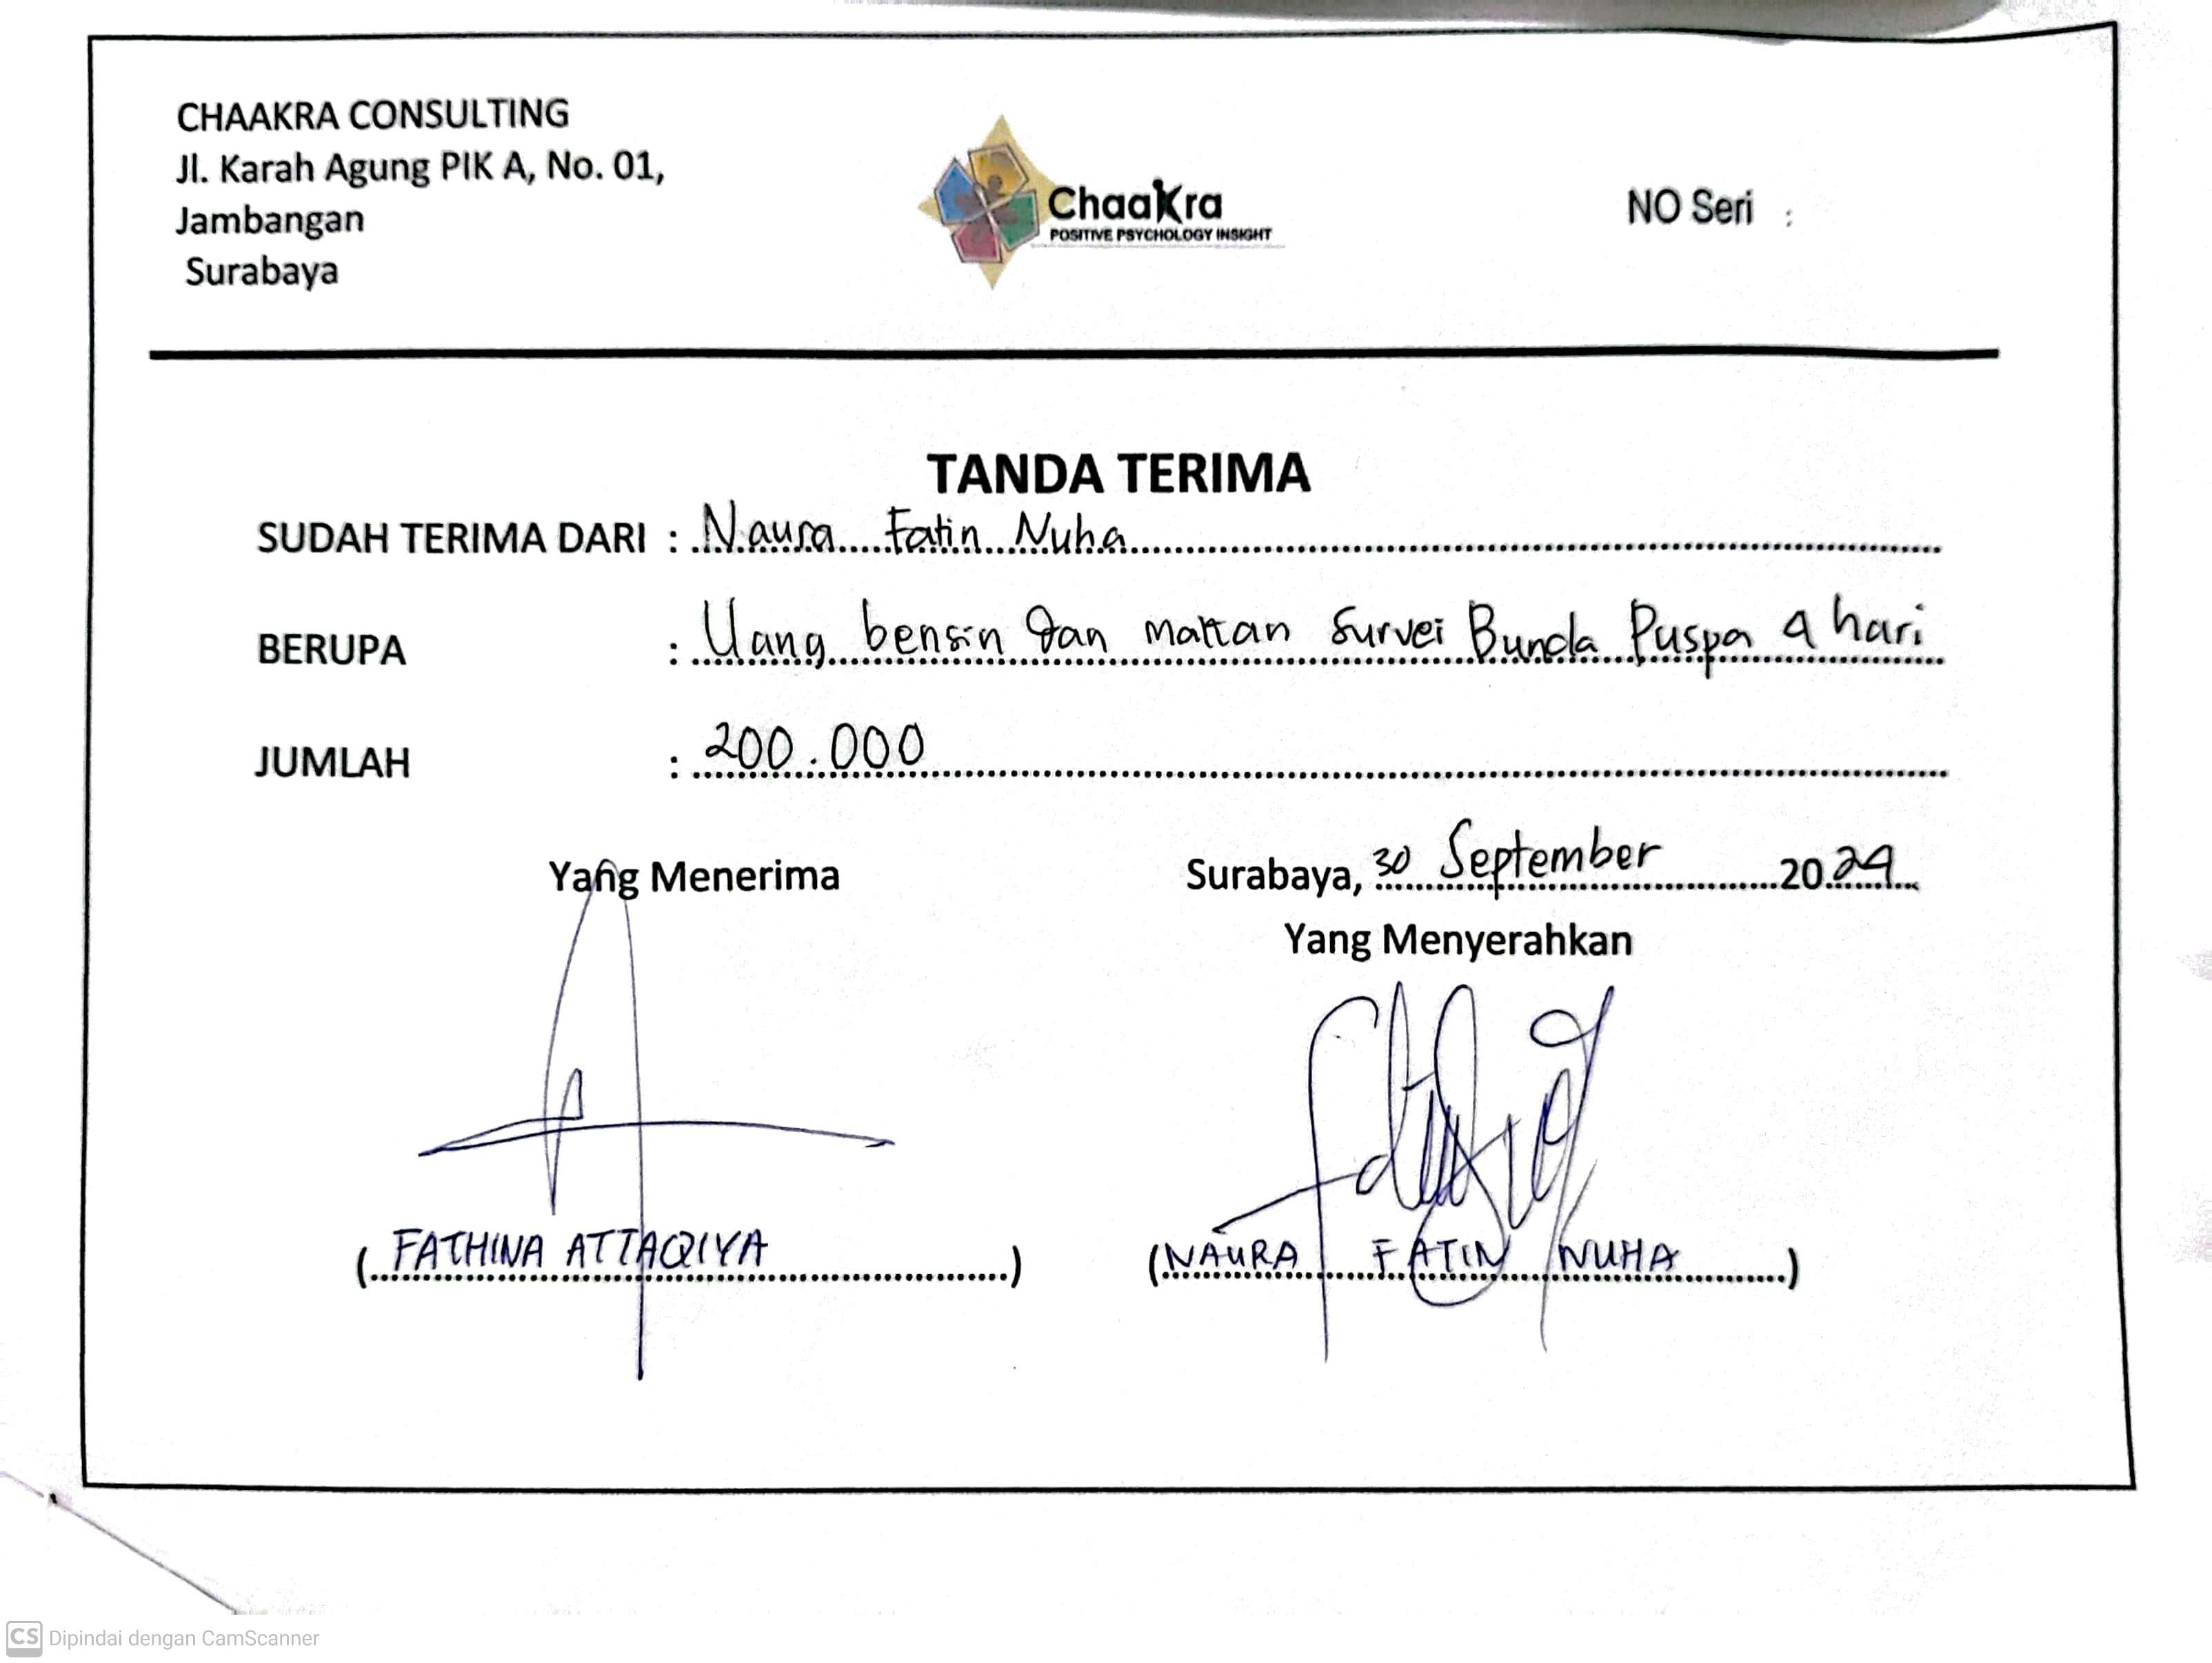 CHAAKRA CONSULTING
Jl. Karah Agung PIK A, No. 01,
Jambangan
Surabaya
Chaakra
POSITIVE PSYCHOLOGY INSIGHT
NO Seri :
TANDA TERIMA
SUDAH TERIMA DARI : Naura Fatin Nuha
BERUPA : Uang bensin dan makan survei Bunda Puspa 4 hari
JUMLAH : 200.000
Yang Menerima
Surabaya, 30 September 2024
Yang Menyerahkan
( FATHINA ATTAQIYA )
( NAURA FATIN NUHA )
CS Dipindai dengan CamScanner